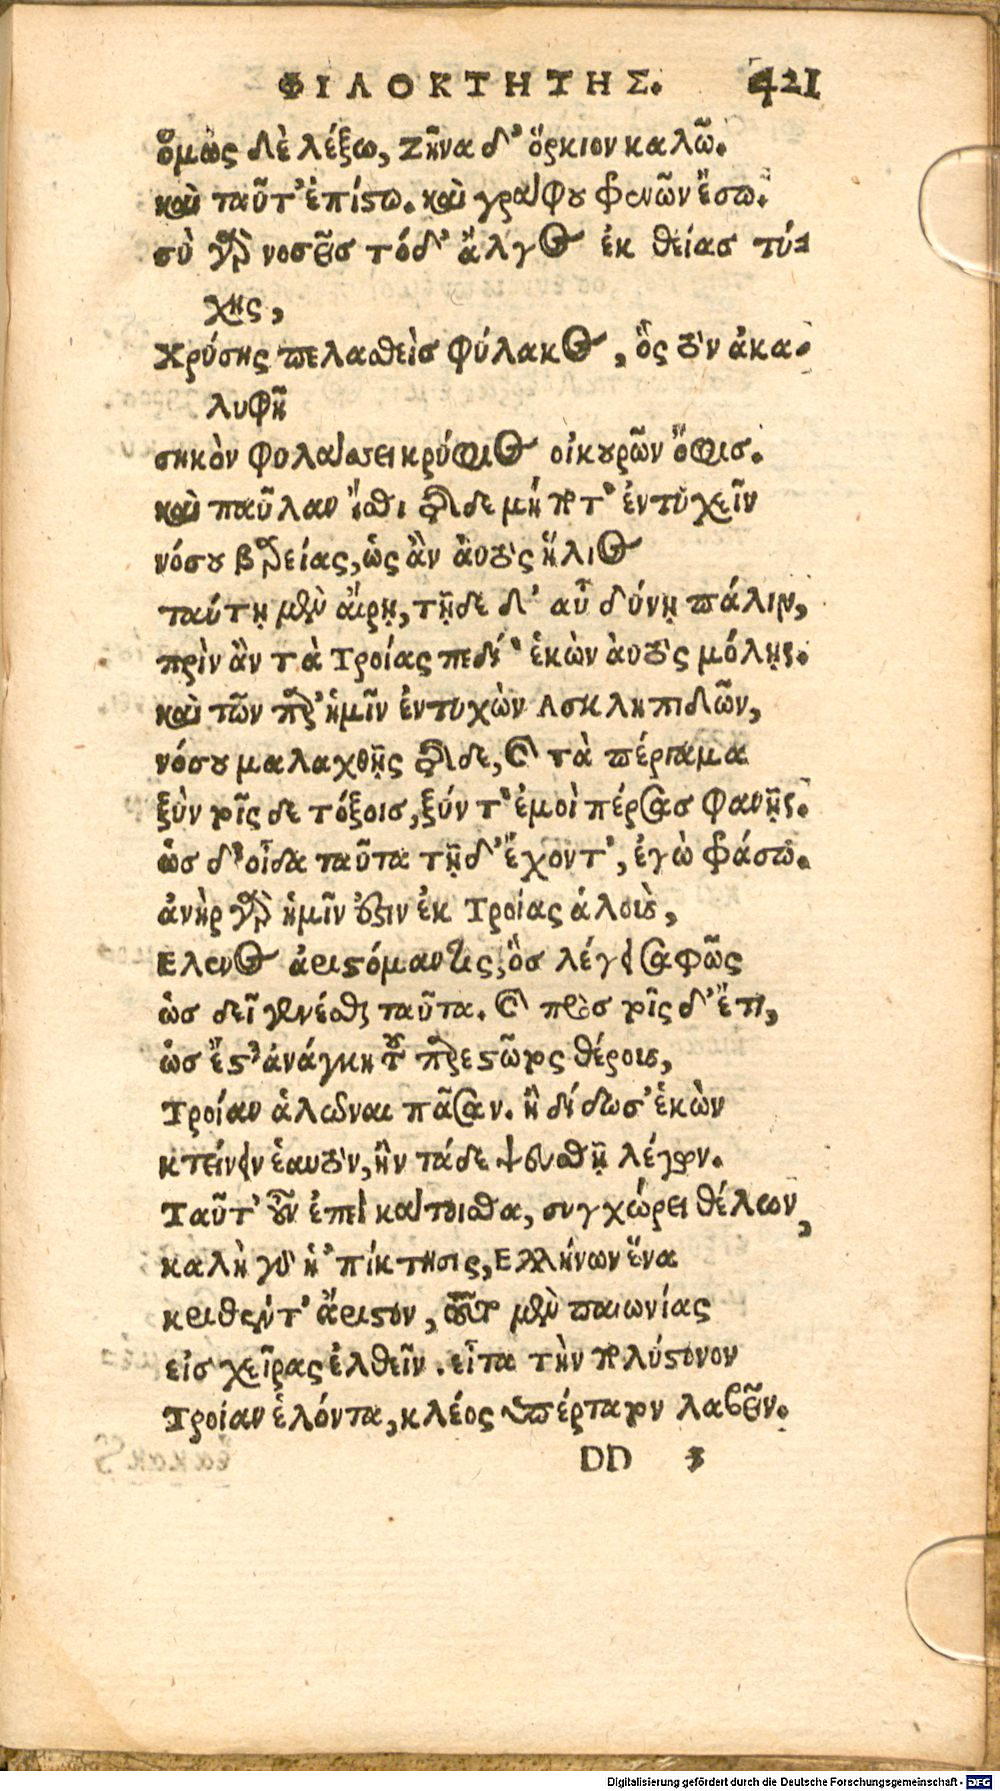 ΦΙΛΟΚΤΗΤΗΣ. 421
ὅμως δὲ λέξω, Ζῆνα δ' ὅρκιον καλῶ.
καὶ ταῦτ' ἐπίστω. καὶ γράφου φρενῶν ἔσω.
σὺ γὰρ νοσεῖς τόδ' ἄλγος ἐκ θείας τύ-
χης,
Χρύσης πελασθεὶς φύλακος, ὃς τὸν ἀκα-
λυφῆ
σηκὸν φυλάσσει κρύφιος οἰκουρῶν ὄφις.
καὶ παῦλαν ἴσθι τῆσδε μήποτ' ἐντυχεῖν
νόσου βαρείας, ὡς ἂν αὐτὸς ἥλιος
ταύτῃ μὲν αἴρῃ, τῇδε δ' αὖ δύνῃ πάλιν,
πρὶν ἂν τὰ Τροίας πεδί' ἑκὼν αὐτὸς μόλῃς.
καὶ τῶν παρ' ἡμῖν ἐντυχὼν Ασκληπιδῶν,
νόσου μαλαχθῇς τῆσδε, καὶ τὰ πέργαμα
ξὺν τοῖς δε τόξοις, ξύν τ' ἐμοὶ πέρσας φανῇς.
ὡς δ' οἶδα ταῦτα τῇδ' ἔχοντ', ἐγὼ φράσω.
ἀνὴρ γὰρ ἡμῖν ἔστιν ἐκ Τροίας ἁλοὺς,
Ελενος ἀριστόμαντις, ὃς λέγει σαφῶς
ὡς δεῖ γενέσθαι ταῦτα. καὶ πρὸς τοῖς δ' ἔτι,
ὡς ἔστ' ἀνάγκη τοῦ παρεστῶτος θέρους,
Τροίαν ἁλῶναι πᾶσαν. ἢ δίδωσ' ἑκὼν
κτείνειν ἑαυτὸν, ἢν τάδε ψευσθῇ λέγων.
Ταῦτ' οὖν ἐπεὶ κάτοισθα, συγχώρει θέλων,
καλὴ γὰρ ἡ 'πίκτησις, Ελλήνων ἕνα
κριθέντ' ἄριστον, τοῦτο μὲν παιωνίας
εἰς χεῖρας ἐλθεῖν. εἶτα τὴν πολύστονον
Τροίαν ἑλόντα, κλέος ὑπέρτατον λαβεῖν.
DD 3
Digitalisierung gefördert durch die Deutsche Forschungsgemeinschaft - DFG